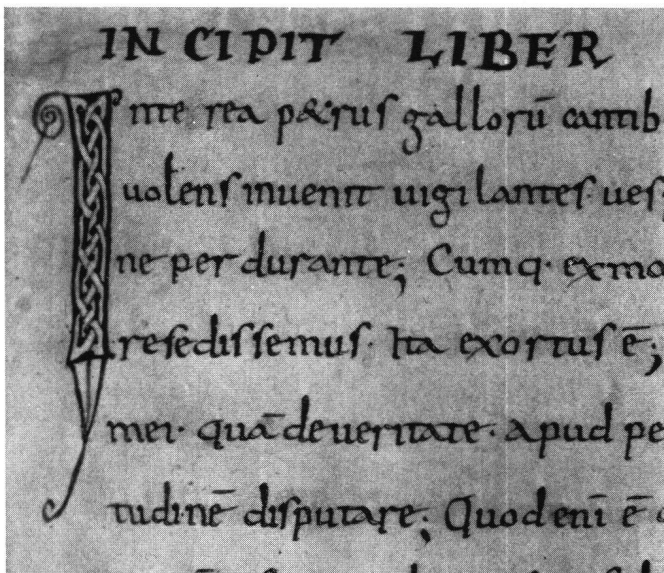 INCIPIT LIBER
Interea p&rus gallorū cantib
uolens inuenit uigilantes. ues
ne perdurante; Cumq. exma
resedissemus. Ita exortus ē;
mei. quā deueritate. apud pe
tudinē disputare; Quod enī ē